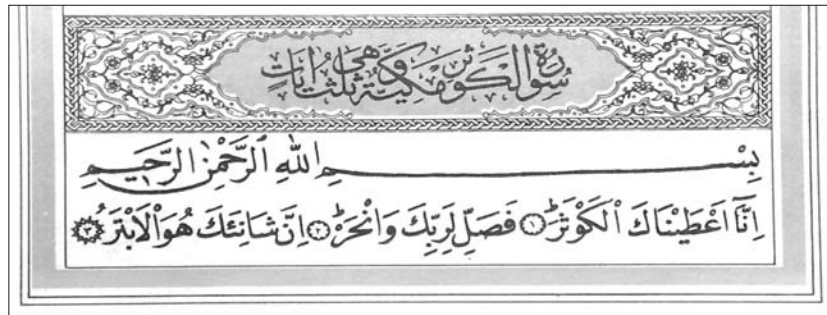 سُورَةُ الْكَوْثَرِ مَكِّيَّةٌ وَهِيَ ثَلٰثُ اٰيَاتٍ
بِسْــــــمِ اللهِ الرَّحْمٰنِ الرَّحِيمِ
اِنَّٓا اَعْطَيْنَاكَ الْكَوْثَرَۜ ﴿١﴾ فَصَلِّ لِرَبِّكَ وَانْحَرْۜ ﴿٢﴾ اِنَّ شَانِئَكَ هُوَ الْاَبْتَرُ ﴿٣﴾